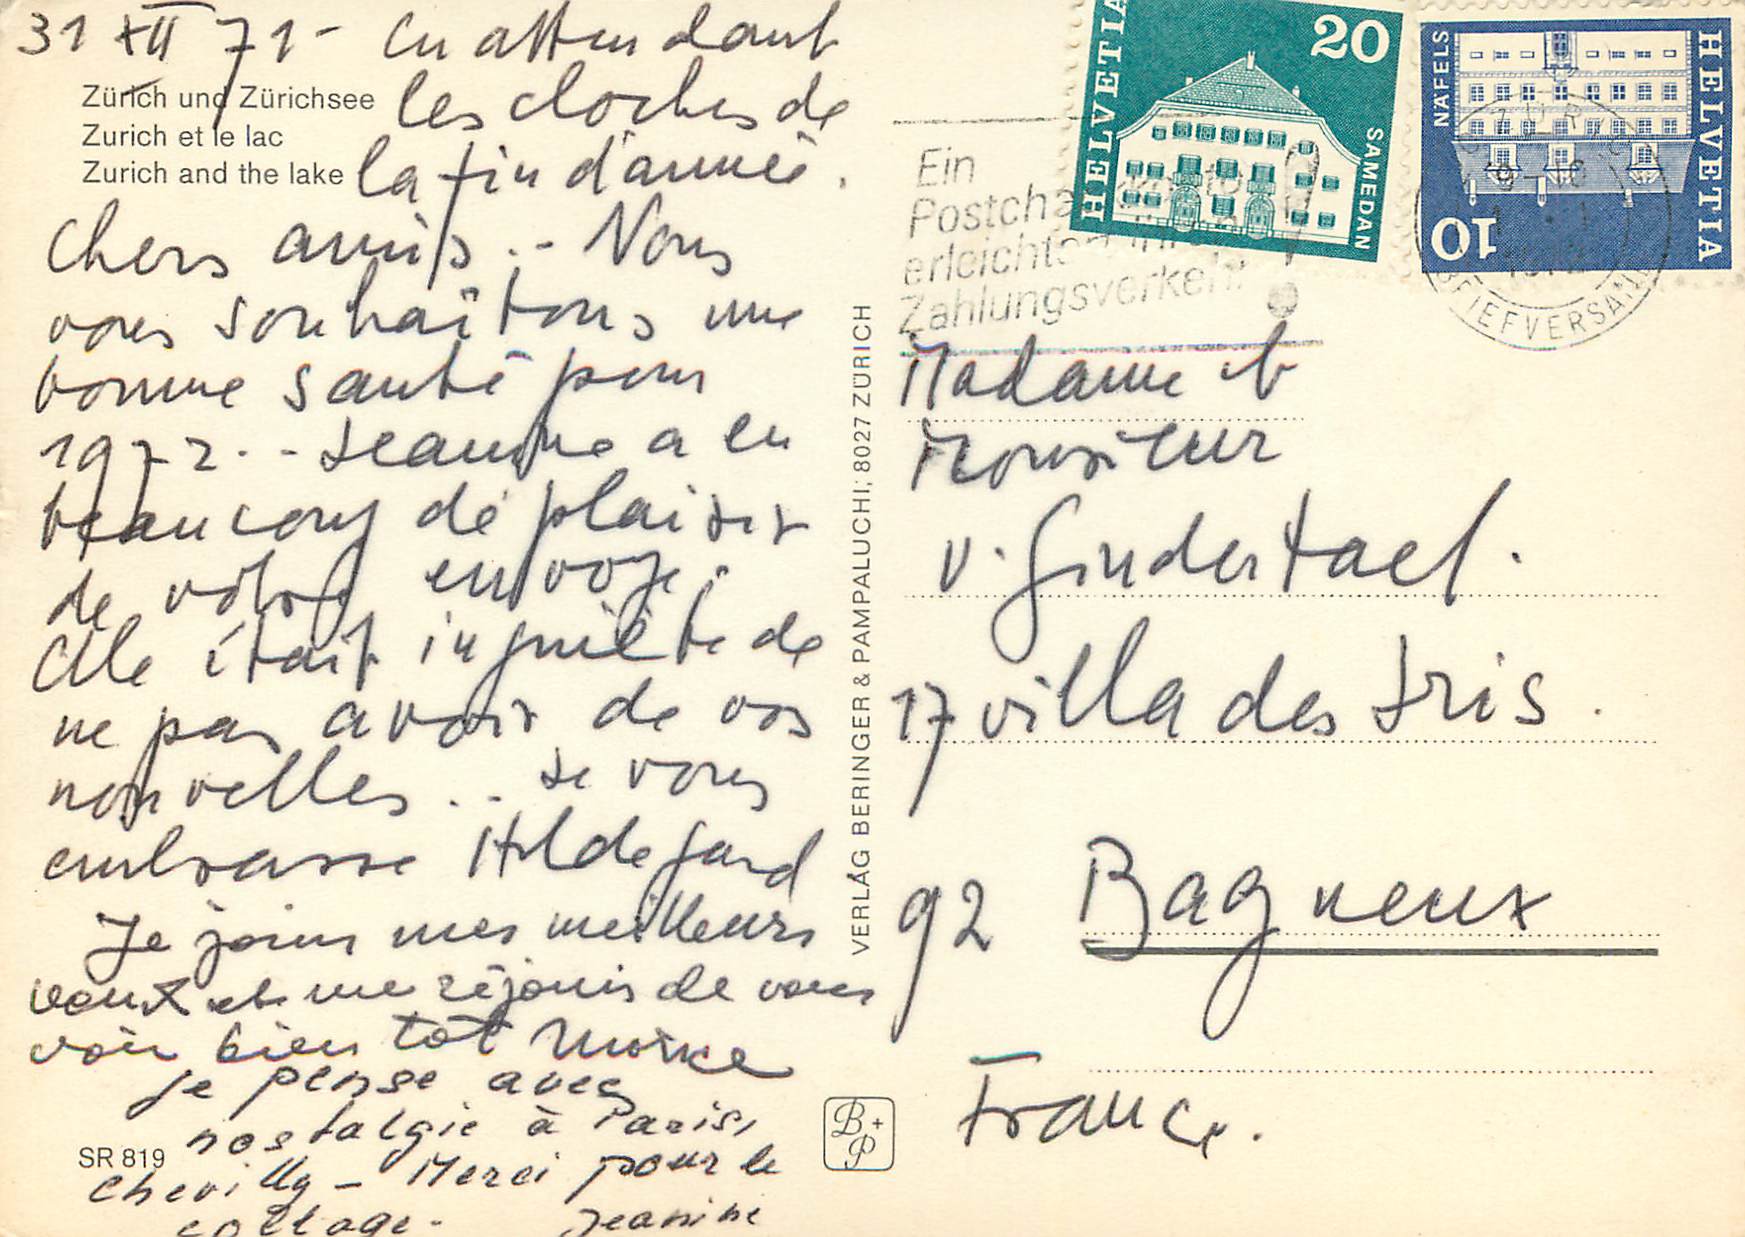 31 XII 71 - En attendant
Zürich und Zürichsee les cloches de
Zurich et le lac
Zurich and the lake la fin d'année.
Chers amis .- Nous
vous souhaitons une
bonne santé pour
1972 .- Jeannine a eu
beaucoup de plaisir
de votre envoye.
Elle était inquiète de
ne pas avoir de vos
nouvelles .. Je vous
embrasse Hildegard
Je joins mes meilleurs
voeux et me réjouis de vous
voir bientôt
je pense avec
nostalgie à Paris,
Chevilly - Merci pour le
cottage. Jeanine
SR 819
VERLAG BERINGER & PAMPALUCHI; 8027 ZÜRICH
B+P
HELVETIA 20 SAMEDAN
NÄFELS HELVETIA 10
Ein
Postche
erleichtert Ihren
Zahlungsverkehr!
BRIEFVERSAND
Madame et
Monsieur
V. Gindertael.
17 villa des Iris.
92 Bagneux
France.